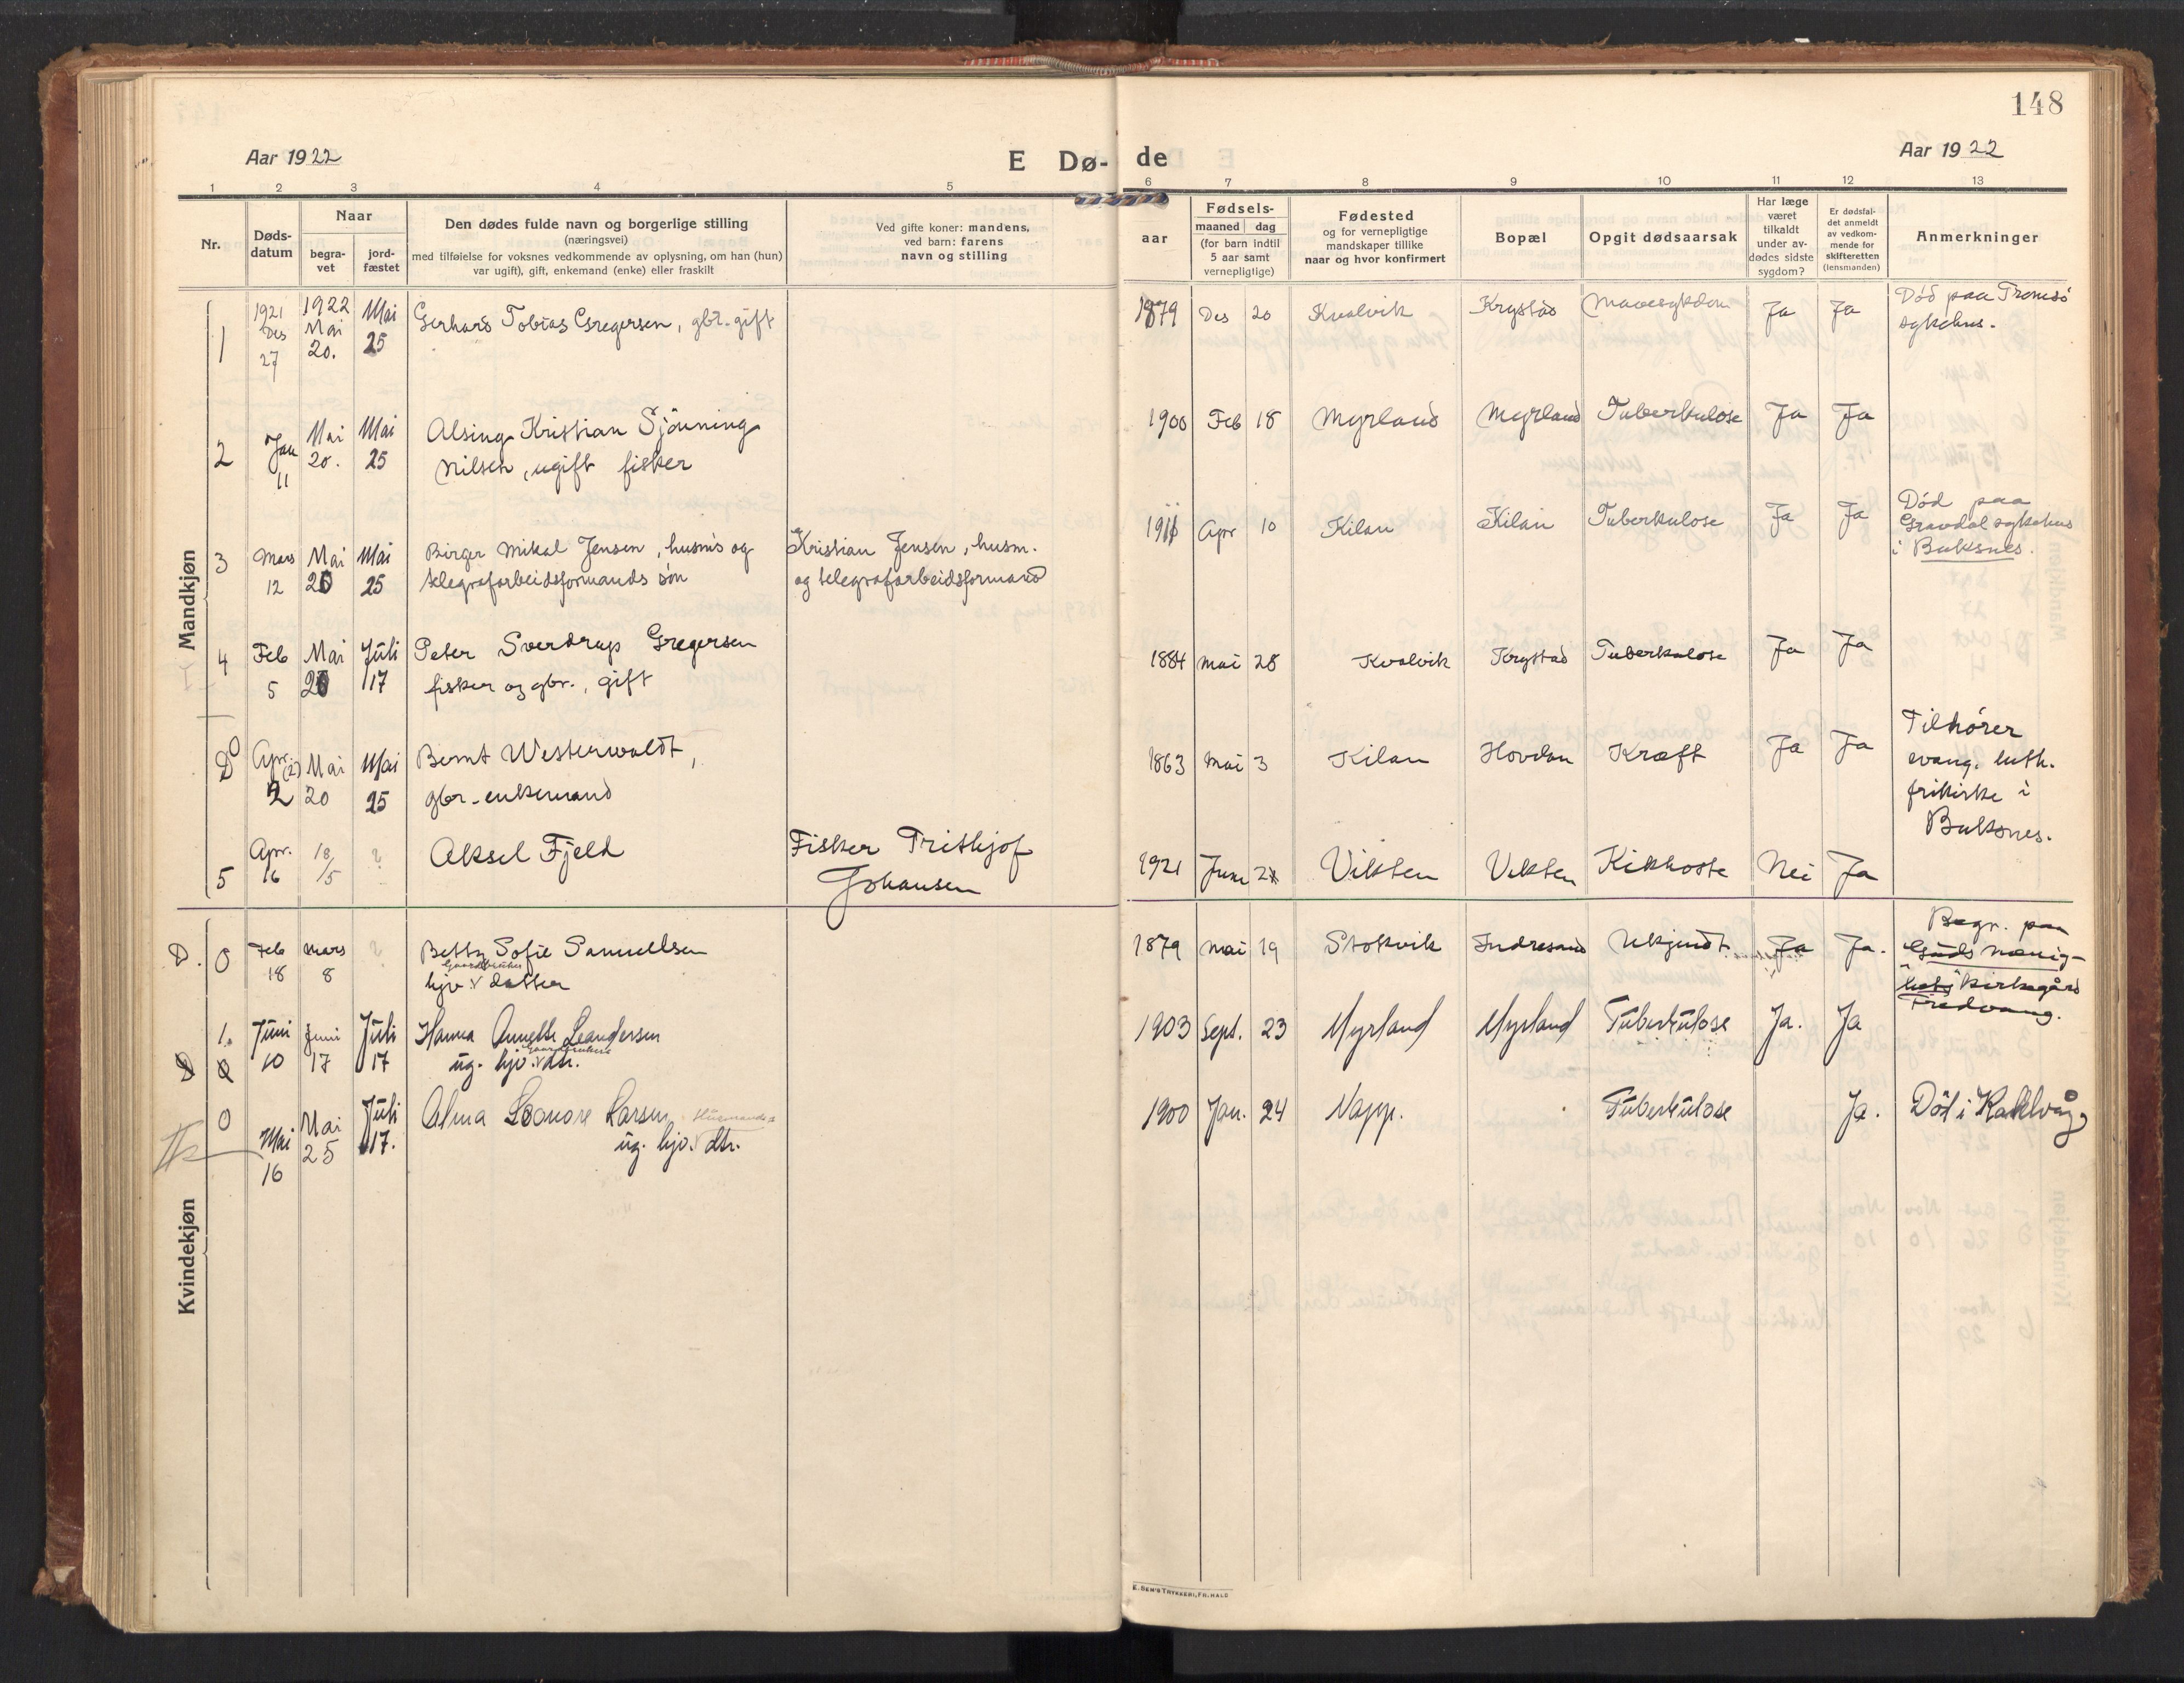 148
Aar 1922
E Dø- de
Aar 1922
1 2 3 4 5 6 7 8 9 10 11 12 13
Nr.
Døds-
datum
Naar
begra-
vet
jord-
fæstet
Den dødes fulde navn og borgerlige stilling
(næringsvei)
med tilføielse for voksnes vedkommende av oplysning, om han (hun)
var ugift), gift, enkemand (enke) eller fraskilt
Ved gifte koner: mandens,
ved barn: farens
navn og stilling
aar
Fødsels-
maaned dag
(for barn indtil
5 aar samt
vernepligtige)
Fødested
og for vernepligtige
mandskaper tillike
naar og hvor konfirmert
Bopæl
Opgit dødsaarsak
Har læge
været
tilkaldt
under av-
dødes sidste
sygdom?
Er dødsfal-
det anmeldt
av vedkom-
mende for
skifteretten
(lensmanden)
Anmerkninger
Mandkjøn
1
1921
Des
27
1922
Mai
20.
Mai
25
Gerhard Tobias Gregersen, gbr. gift
1879 Des 20 Kvalvik Krystad Mavesykdom Ja Ja
Død paa Tromsø
sykehus.
2
Jan
11
Mai
20.
Mai
25
Alsing Kristian Sjönning
Nilsen, ugift fisker
1900 Feb 18 Myrland Myrland Tuberkulose Ja Ja
3
Mars
12
Mai
20
Mai
25
Birger Mikal Jensen, husm's og
telegrafarbeidsformands søn
Kristian Jensen, husm.
og telegrafarbeidsformand
1911 Apr 10 Kilan Kilan Tuberkulose Ja Ja
Død paa
Gravdal sykehus
i Buksnes.
4
Feb
5
Mai
20
Juli
17
Peter Sverdrup Gregersen
fisker og gbr., gift
1884 Mai 28 Kvalvik Krystad Tuberkulose Ja Ja
D 0
Apr.
2
(2)
Mai
20
Mai
25
Bernt Westerwaldt,
gbr. enkemand
1863 Mai 3 Kilan Hovdan Kræft Ja Ja
Tilhører
evang. luth.
frikirke i
Buksnes.
5
Apr.
16
18/5
?
Aksel Fjeld
Fisker Fritkjof
Johansen
1921 Juni Vikten Vikten Kikhoste Nei Ja
Kvindekjøn
D. 0
Feb
18
Mars
8
?
Betty Sofie Samuelsen
Gaardbruker
hjv. v datter
1879 Mai 19 Stokvik Indresand Ukjendt Ja Ja.
Begr. paa
Guds menig-
hets kirkegård
Fredvang.
1.
Juni
10
Juni
17
Juli
17
Hanna Annette Leandersen
Gaardbrukers
ug. hjv. v dtr.
1903 Sept. 23 Myrland Myrland Tuberkulose Ja. Ja
0
Mai
16
Mai
25
Juli
17.
Alma Leonore Larsen Husmands
ug. hjv. v dtr.
1900 Jan. 24 Napp. Tuberkulose Ja.
Död i Kabelvåg
E. SEM'S TRYKKERI, FR.HALD